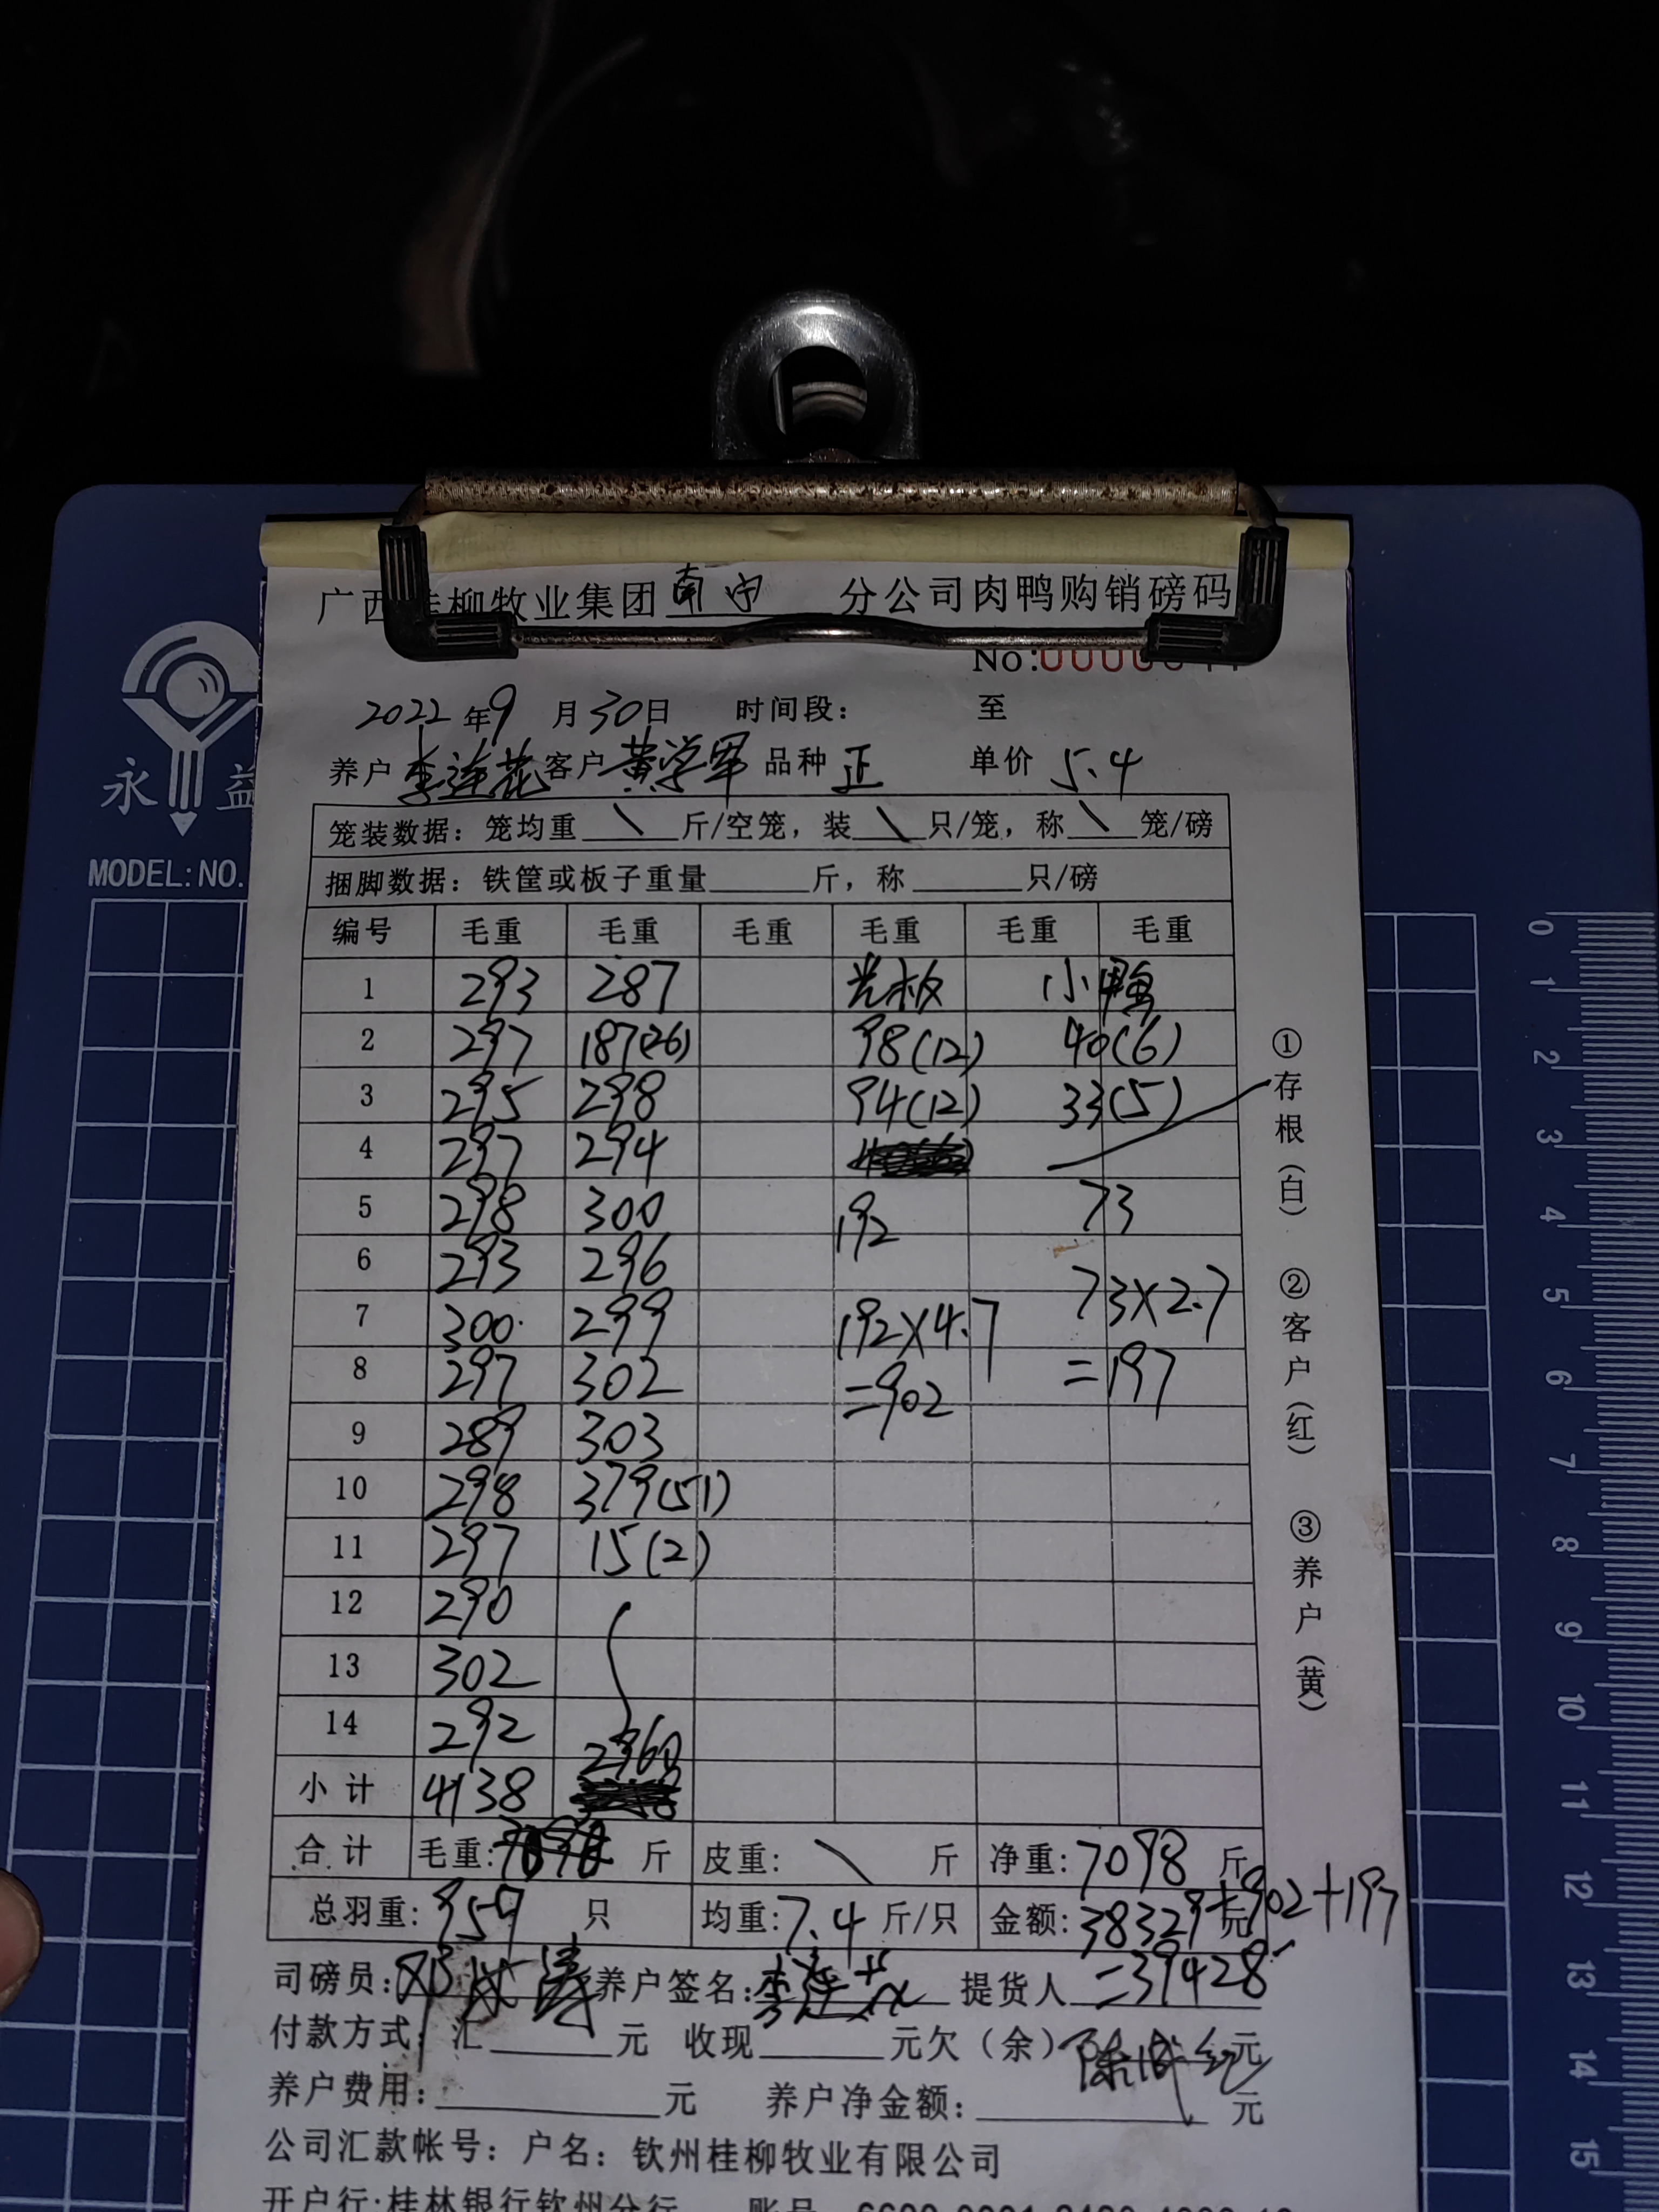 广西桂柳牧业集团南宁分公司肉鸭购销磅码
No:0000
2022年9月30日 时间段: 至
养户 李莲花 客户 黄学军 品种 正 单价 5.4
笼装数据: 笼均重 \ 斤/空笼, 装 \ 只/笼, 称 \ 笼/磅
捆脚数据: 铁筐或板子重量 斤, 称 只/磅
编号 毛重 毛重 毛重 毛重 毛重 毛重
1 293 287 光板 小鸭
2 297 187(26) 98(12) 40(6)
3 295 298 94(12) 33(5)
4 297 294
5 298 300 192 73
6 293 296
7 300 299 192×4.7 73×2.7
8 297 302 =902 =197
9 289 303
10 298 379(51)
11 297 15(2)
12 290
13 302
14 292 2960
小计 4138
合计 毛重: 斤 皮重: \ 斤 净重: 7098 斤
总羽重: 959 只 均重: 7.4 斤/只 金额: 38329元+902+197
司磅员: 养户签名: 李莲花 提货人 =39428
付款方式: 汇 元 收现 元欠(余) 元
养户费用: 元 养户净金额: 元
公司汇款帐号: 户名: 钦州桂柳牧业有限公司
开户行:桂林银行钦州分行 账号
①存根(白) ②客户(红) ③养户(黄)
永益
MODEL:NO.
0 1 2 3 4 5 6 7 8 9 10 11 12 13 14 15